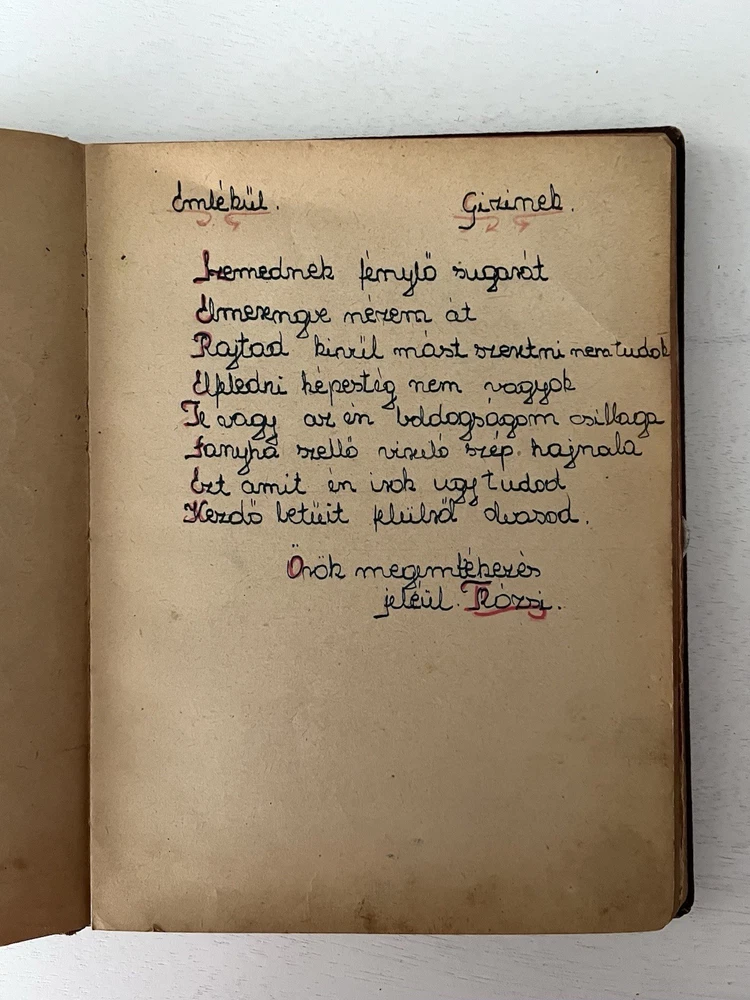 Emlékül. Gizinek.
Szemednek fénylő sugarát
Elmerengve nézem át
Rajtad kivül mást szeretni nem tudok
Elfledni képestég nem vagyok
Te vagy az én boldogságom csillaga
Lanyha szellő viruló szép hajnala
Ezt amit én irok ugy tudod
Kezdő betűit felülről olvasod.
Örök megemlékezés
jeléül. Rózsi.